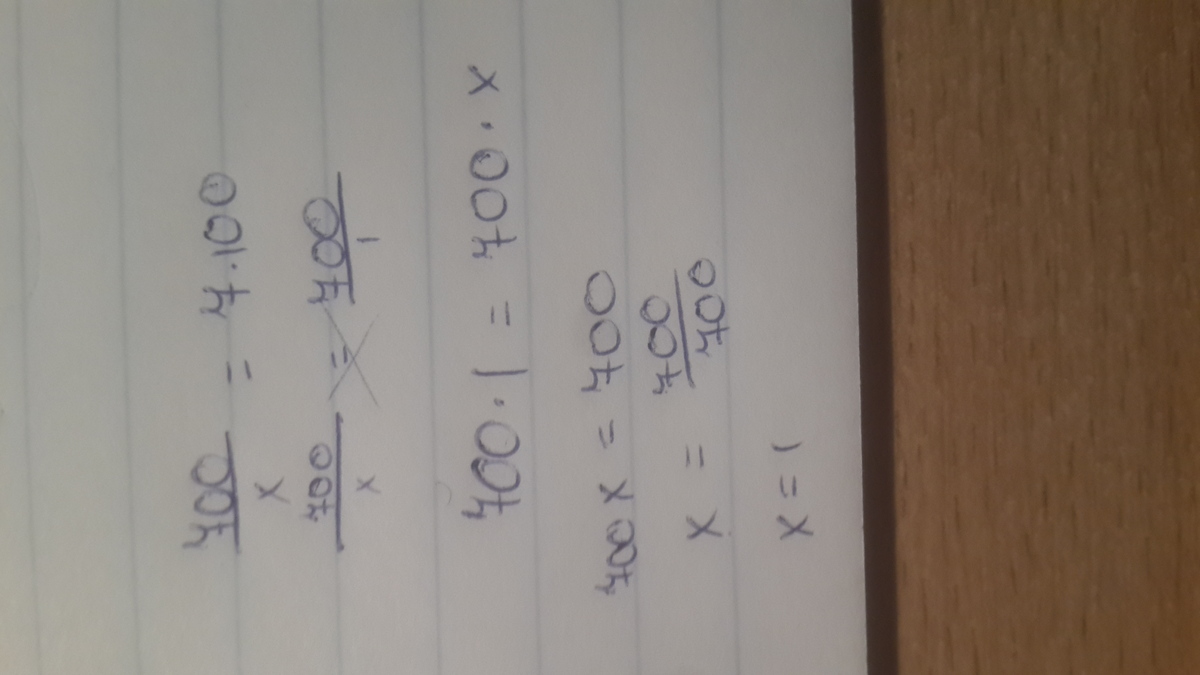 700/x = 7.100
700/x = 700/1
700.1 = 700.x
700x = 700
x = 700/700
x = 1